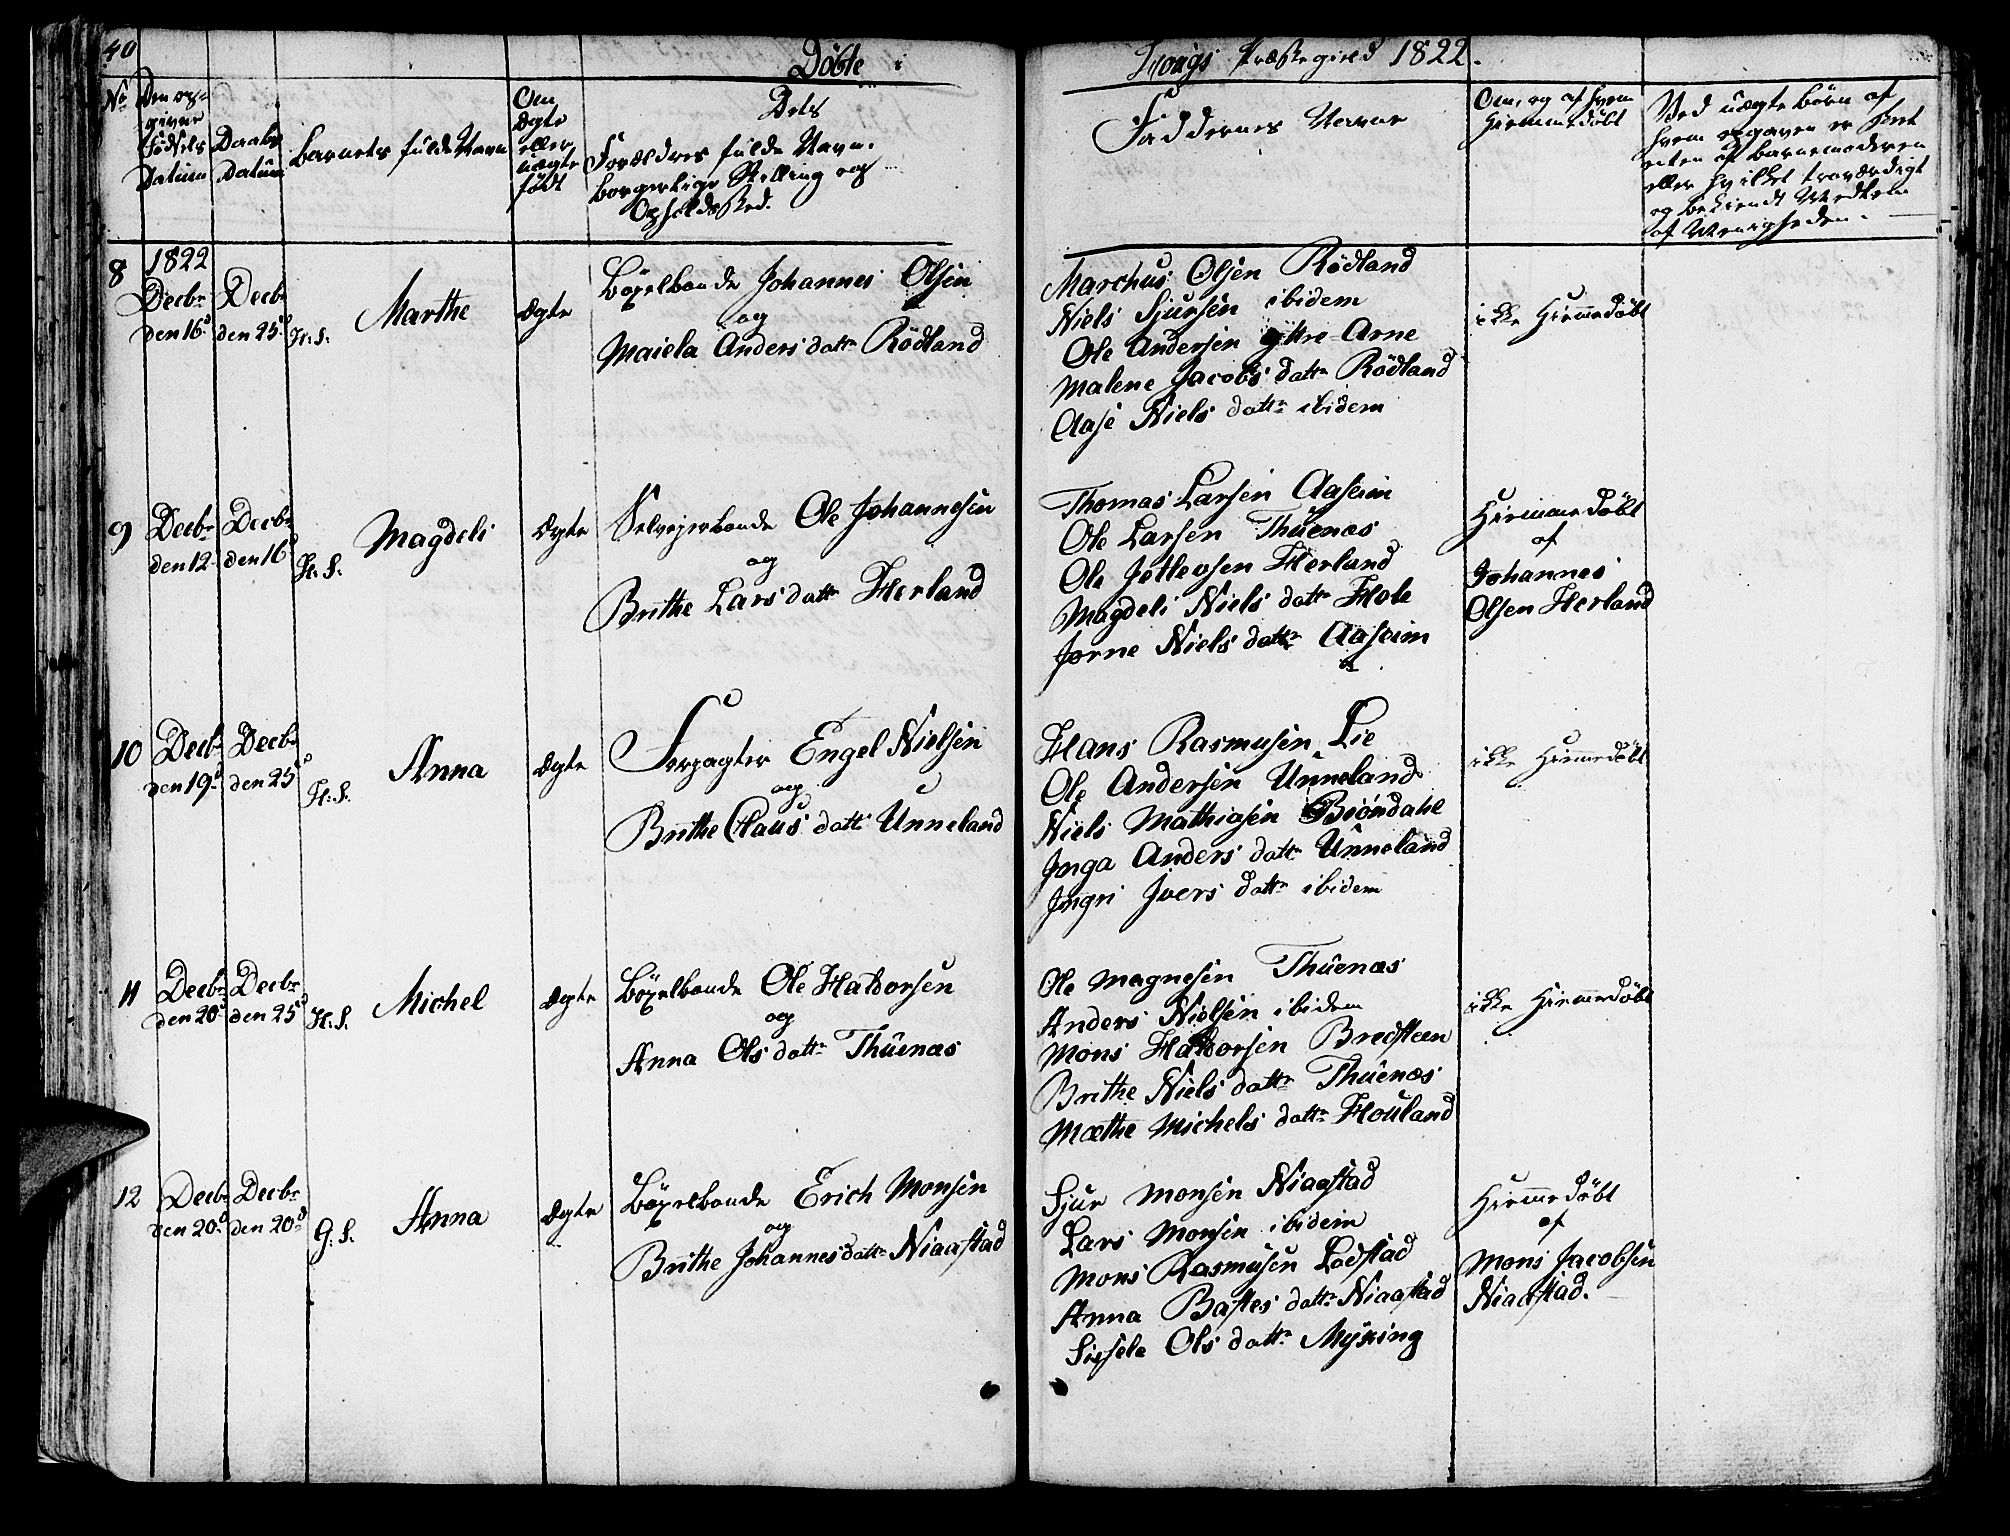 40
Döbte i
Hougs Præstegield 1822.
No
Den op-
givne
Födsels
Datum
Daabs
Datum
Barnets fulde Navn
Om
Ægte
eller
uægte
födt
Dets
Forældres fulde Navn.
borgerlige Stilling og
Opholdssted.
Faddernes Navne
Om, og af hvem
hiemmedøbt
Ved uægte börn af
hvem opgaven er skeet
enten af barnemoderen
eller hvilket troværdigt
og bekiendt Medlem
af Menigheden.
8
1822
Decbr
den 16d
Decbr
den 25d
H. S.
Marthe
Ægte
Böxelbonde Johannes Olsen
og
Maiela Anders dattr Rödland
Marchus Olsen Rödland
Niels Sjursen ibidem
Ole Andersen yttre Arne
Malene Jacobs dattr Rödland
Aase Niels dattr ibidem
ikke Hiemmedøbt
9
Decbr
den 12
Decbr
den 16d
H. S.
Magdeli
Ægte
Selvejerbonde Ole Johannesen
og
Brithe Lars dattr Herland
Thomas Larsen Aaseim
Ole Larsen Thuenæs
Ole Jetlevsen Herland
Magdeli Niels dattr Hole
Jorne Niels dattr Aaseim
Hiemmedøbt
af
Johannes
Olsen Herland
10
Decbr
den 19d
Decbr
den 25d
H. S.
Anna
Ægte
Forpagter Engel Nielsen
og
Brithe Claus dattr Unneland
Hans Rasmusen Lie
Ole Andersen Unneland
Niels Mathiasen Biöndahl
Inga Anders dattr Unneland
Ingri Ivers dattr ibidem
ikke Hiemmedøbt
11
Decbr
den 20d
Decbr
den 25d
H. S.
Michel
Ægte
Böxelbonde Ole Haldorsen
og
Anna Ols dattr Thuenæs
Ole Magnesen Thuenæs
Anders Nielsen ibidem
Mons Haldorsen Bredsteen
Brithe Niels dattr Thuenæs
Mæthe Michels dattr Houland
ikke Hiemmedøbt
12
Decbr
den 20d
Decbr
den 20d
G. S.
Anna
Ægte
Böxelbonde Erich Monsen
og
Brithe Johannes dattr Niaastad
Sjur Monsen Niaastad
Lars Monsen ibidem
Mons Rasmusen Lodstad
Anna Bastes dattr Niaastad
Sissele Ols dattr Myking
Hiemmedøbt
af
Mons Jacobsen
Niaastad.